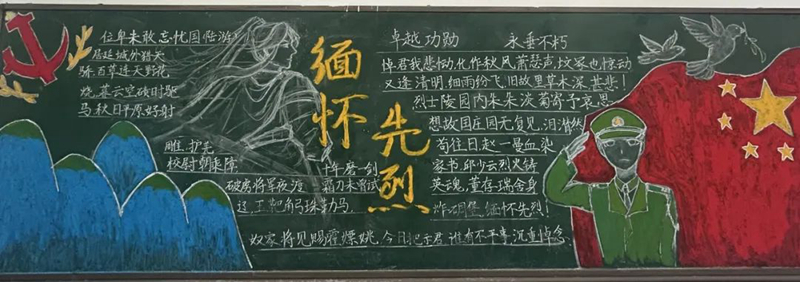 位卑未敢忘忧国陆游
居延城外猎天
骄,百草连天野花
烧,暮云空碛时驱
马,秋日平原好射
雕。护羌
校尉朝乘障,
破虏将军夜渡
辽,玉靶角弓珠勒马,
十年磨一剑
霜刃未曾试
缅怀先烈
卓越功勋 永垂不朽
悼君我悲恸,化作秋风萧瑟声,坟冢也惊动
又逢清明,细雨纷飞,旧故里草木深,甚悲!
烈士陵园内朵朵淡菊舒予哀思,
想故国庄园无复见,泪潸然
前往日赵一曼血染
家书,邱少云烈火铸
英魂,董存瑞舍身
炸碉堡,缅怀先烈!
奴家将见赐霍嫖姚,今日把示君,谁有不平事,沉重悼念